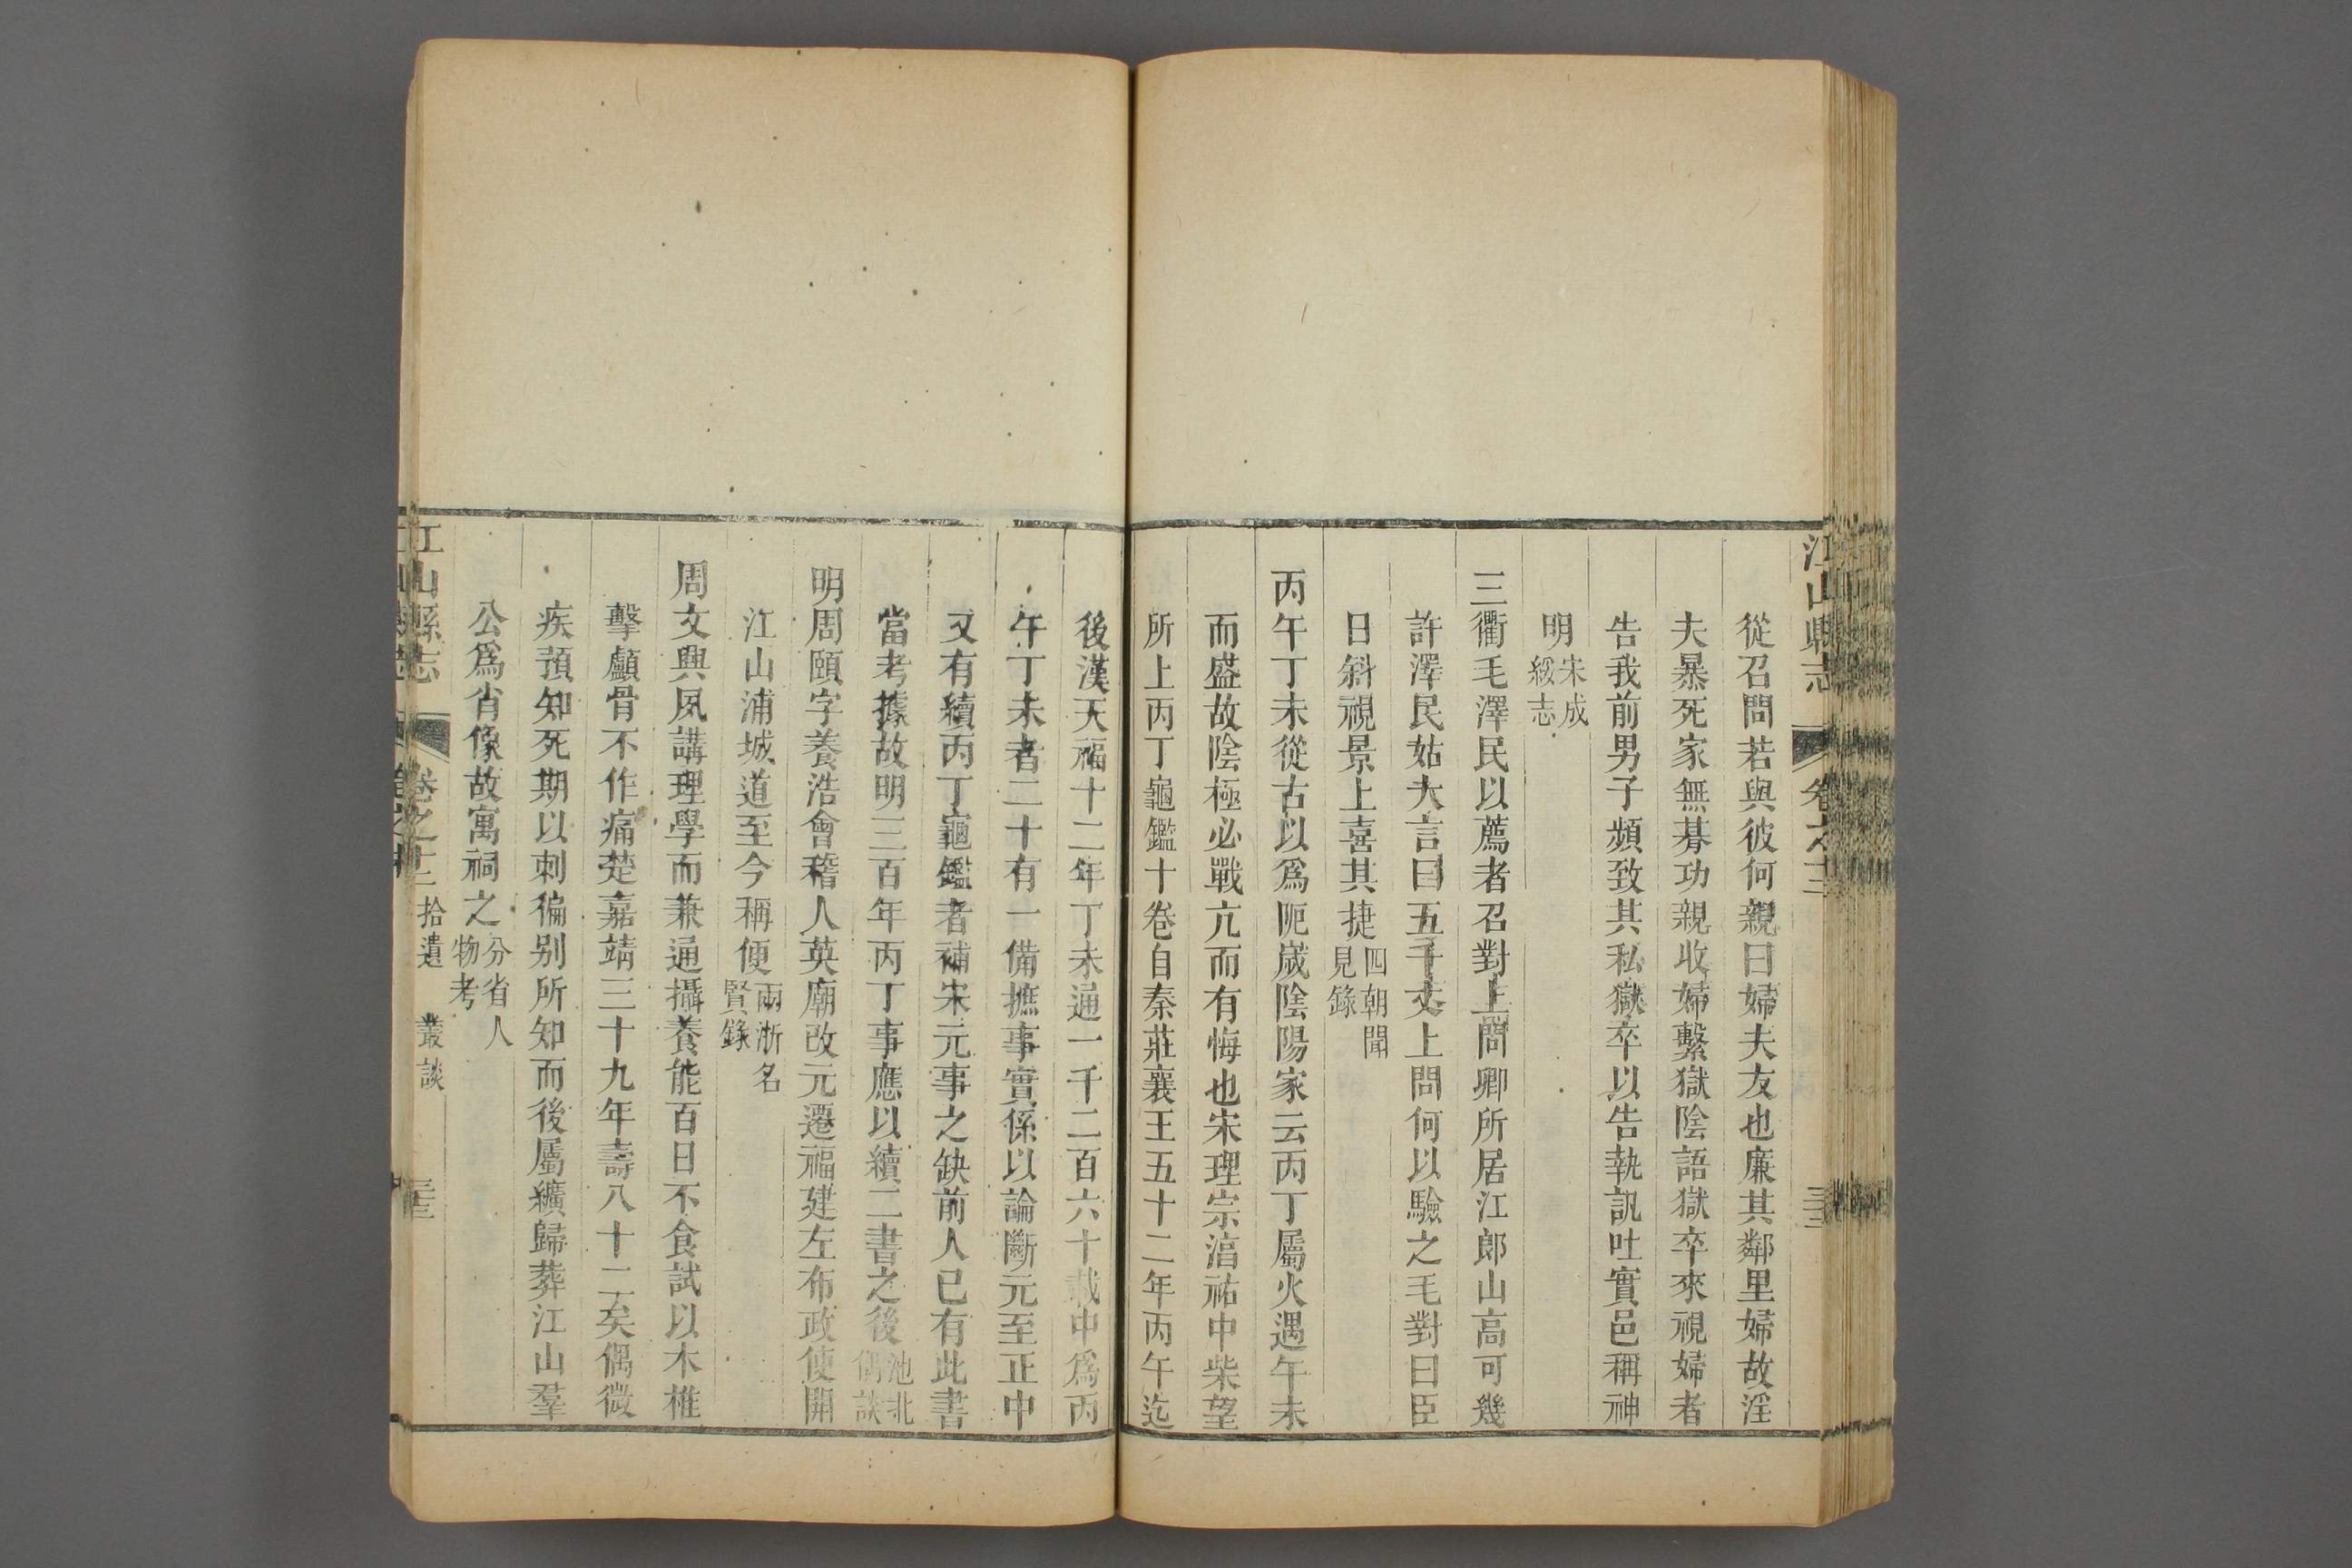 江山縣志
卷之十二
三十二
從召問若與彼何親曰婦夫友也廉其鄰里婦故淫
夫暴死家無朞功親收婦繫獄陰語獄卒來視婦者
告我前男子頻致其私獄卒以告執訊吐實邑稱神
明宋成
綏志
三衢毛澤民以薦者召對上問卿所居江郎山高可幾
許澤民姑大言曰五千丈上問何以驗之毛對曰臣
日斜視景上喜其捷四朝聞
見錄
丙午丁未從古以爲阨歲陰陽家云丙丁屬火遇午未
而盛故陰極必戰亢而有悔也宋理宗湻祐中柴望
所上丙丁龜鑑十卷自秦莊襄王五十二年丙午迄
後漢天福十二年丁未通一千二百六十載中爲丙
午丁未者二十有一備摭事實係以論斷元至正中
又有續丙丁龜鑑者補宋元事之缺前人已有此書
當考據故明三百年丙丁事應以續二書之後池北
偶談
明周頤字養浩會稽人英廟改元遷福建左布政使開
江山浦城道至今稱便兩浙名
賢錄
周文興夙講理學而兼通攝養能百日不食試以木椎
擊顱骨不作痛楚嘉靖三十九年壽八十二矣偶微
疾預知死期以刺徧别所知而後屬纊歸葬江山羣
公爲肖像故寓祠之分省人
物考
江山縣志
卷之十二 拾遺 叢談
三十三